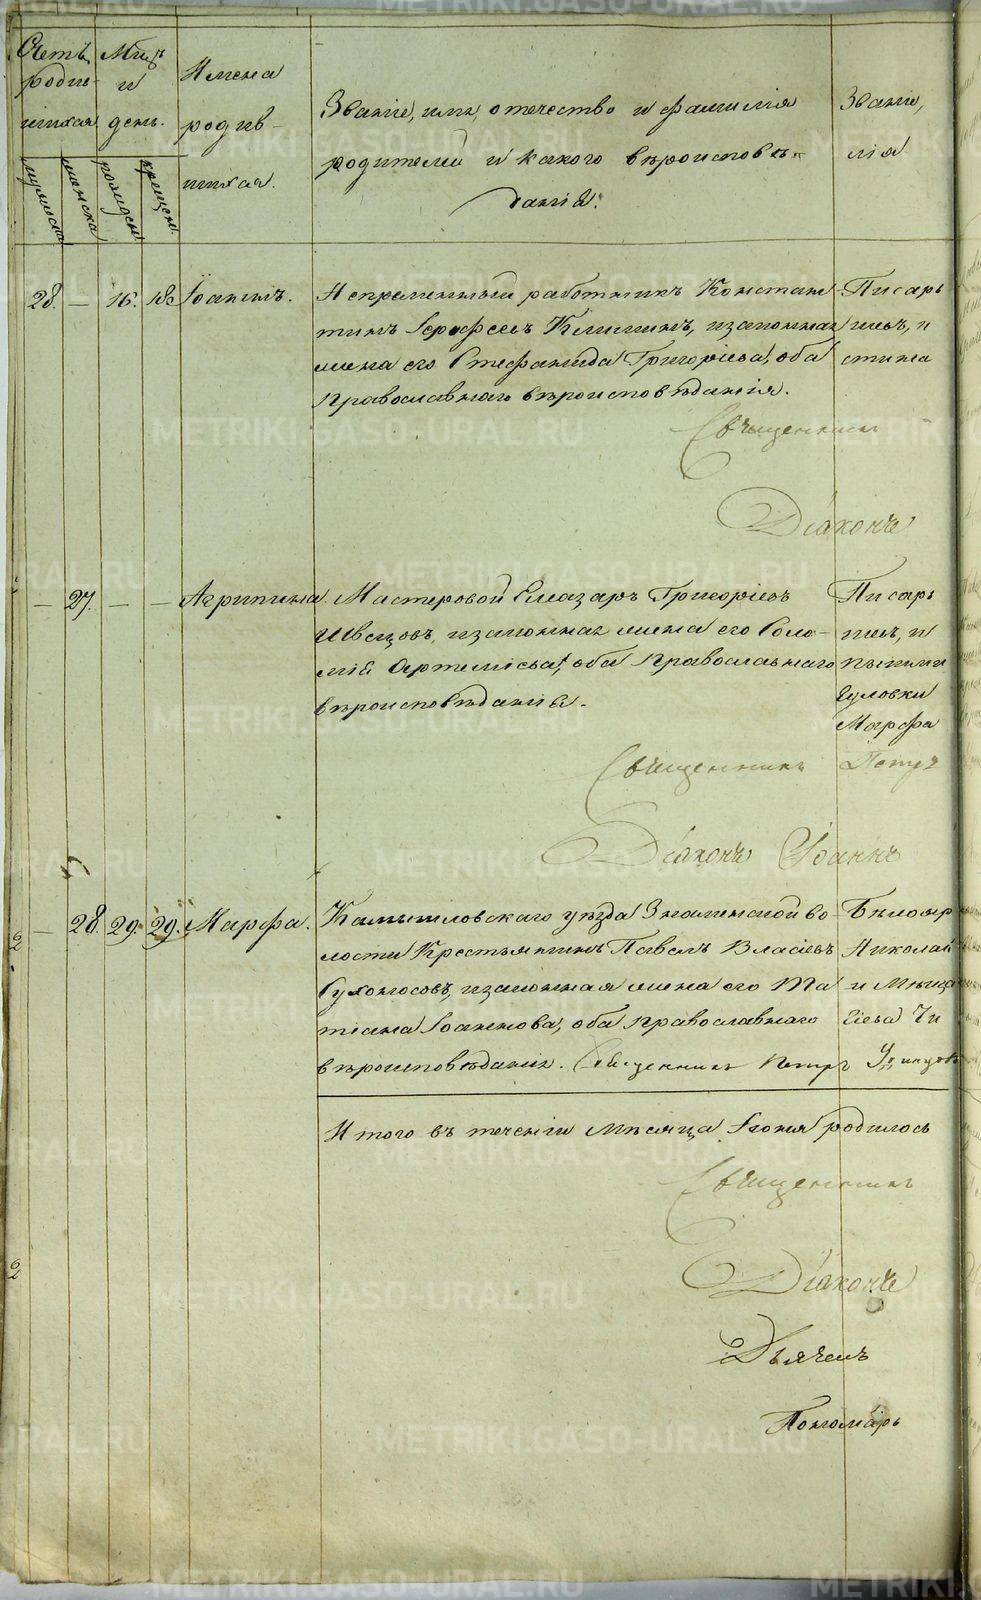 Счетъ родив-
шихся
мужеска
женска
Мѣсяцъ
и
день.
рожден.
крещен.
Имена
родив-
шихся.
Званіе, имя, отечество и фамилія
родителей и какого вѣроисповѣ-
данія.
Званіе,
лія
28. — 16. 18. Іоакимъ.
Непременный работникъ Констан
тинъ законная
жена его Стефанида Григоріева, оба
православнаго вѣроисповѣданія.
Священникъ
Діаконъ
Писарь
— 27. — — Агрипина.
Мастеровой Елазаръ Григоріевъ
Швецовъ, и законная жена его Соло-
мія Артеміева, оба православнаго
вѣроисповѣданія.
Священникъ Петръ
Діаконъ Іоаннъ
Писарь
Марфа
— 28. 29. 29. Марфа.
Камышловскаго уѣзда Знаменской во-
лости Крестьянинъ Павелъ Власіевъ
Сухоносовъ, и законная жена его Та
тіана Іоаннова, оба православнаго
вѣроисповѣданія. Священникъ Петръ Удинцовъ
Бѣлояр
Николай
Итого въ теченіи мѣсяца Іюня родилось
Священникъ
Діаконъ
Дьячекъ
Пономарь
METRIKI.GASO-URAL.RU